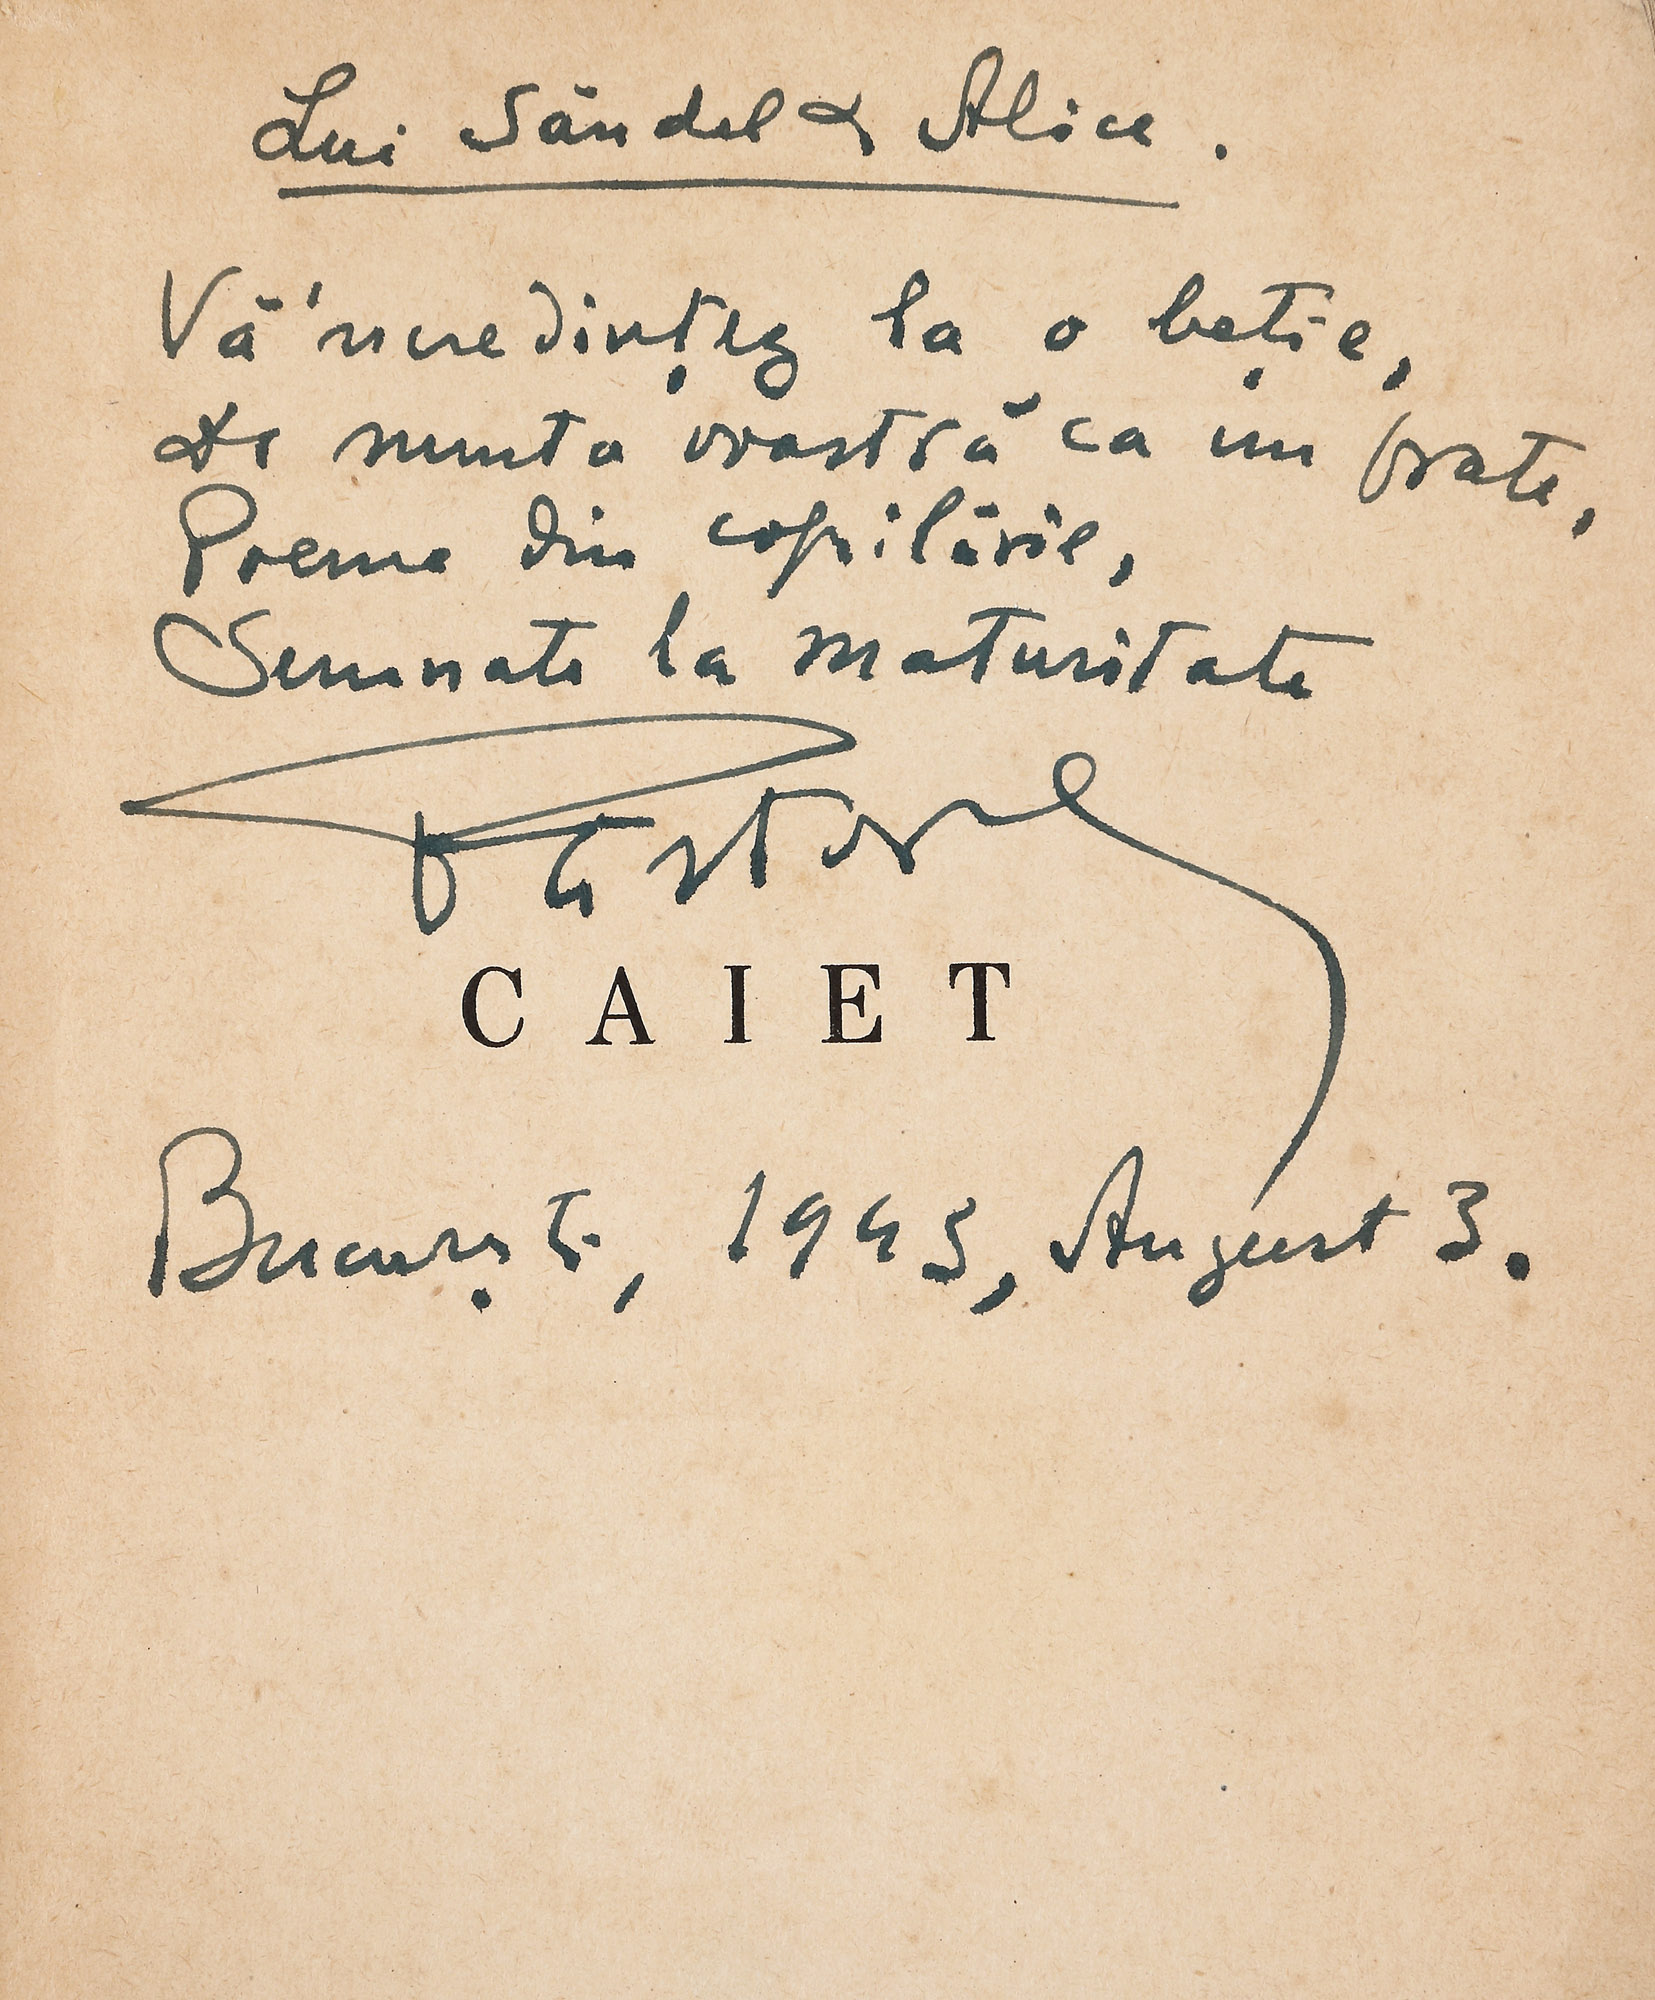 Lui Săndel & Alice.
Vă 'ncredințez la o beție,
De nunta voastră ca un frate,
Poeme din copilărie,
Semnate la maturitate
Păstorel
CAIET
București, 1943, August 3.